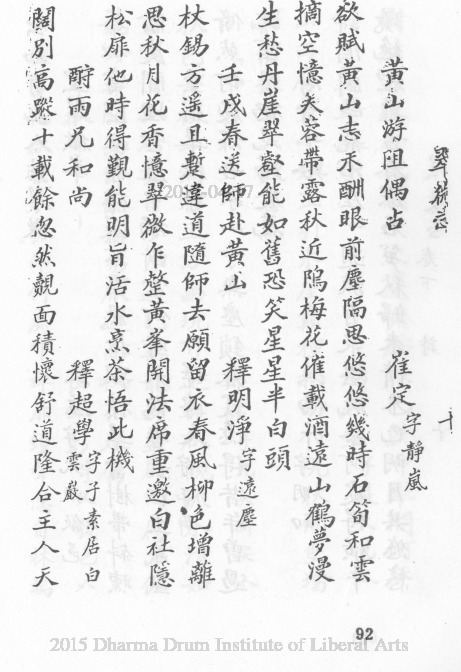 黃山游阻偶占
崔定字靜嵐
欲賦黃山志未酬眼前塵隔思悠悠幾時石筍和雲
摘空憶芙蓉帶露秋近隝梅花催載酒遠山鶴夢漫
生愁丹崖翠壑能如舊恐笑星星半白頭
壬戌春送師赴黃山
釋明淨字遠塵
杖錫方遥且蹔違道隨師去願留衣春風柳色增離
思秋月花香憶翠微乍整黃峯開法席重邀白社隱
松扉他時得覲能明旨活水烹茶悟此機
酧雨兄和尚
釋超學字子素居白雲巖
闊別高蹤十載餘忽然覿面積懷舒道隆合主人天
92
2015 Dharma Drum Institute of Liberal Arts